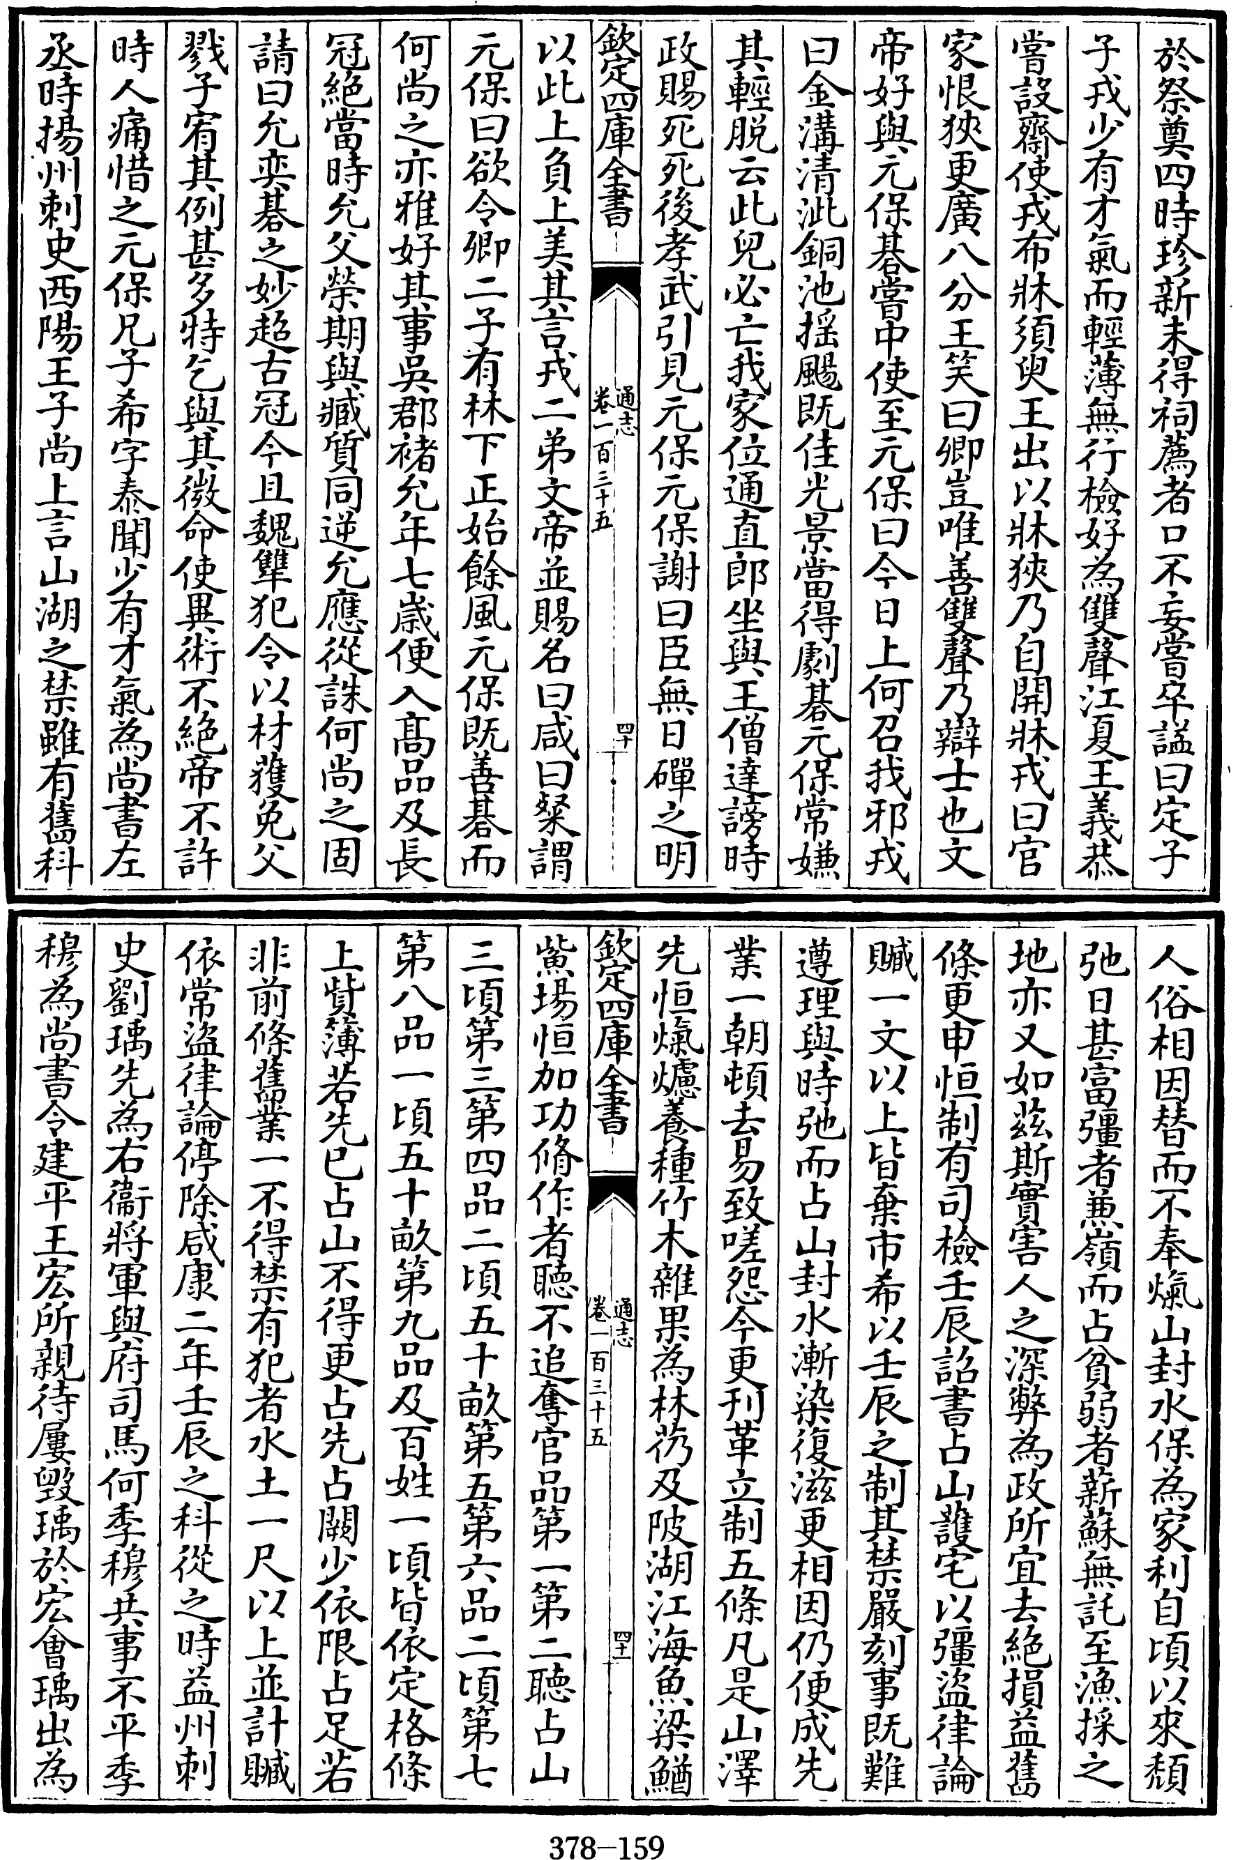 於祭奠四時珍新未得祠薦者口不妄嘗卒諡曰定子
子戎少有才氣而輕薄無行檢好為雙聲江夏王義恭
嘗設齋使戎布牀須臾王出以牀狹乃自開牀戎曰官
家恨狹更廣八分王笑曰卿豈唯善雙聲乃辯士也文
帝好與元保碁嘗中使至元保曰今日上何召我邪戎
曰金溝清泚銅池揺颺既佳光景當得劇碁元保常嫌
其輕脱云此兒必亡我家位通直郎坐與王僧達謗時
政賜死死後孝武引見元保元保謝曰臣無日磾之明
欽定四庫全書
通志
卷一百三十五
四十
以此上負上美其言戎二弟文帝並賜名曰咸曰粲謂
元保曰欲令卿二子有林下正始餘風元保既善碁而
何尚之亦雅好其事吳郡褚允年七歲便入髙品及長
冠絶當時允父榮期與臧質同逆允應從誅何尚之固
請曰允奕碁之妙超古冠今且魏犨犯令以材獲免父
戮子宥其例甚多特乞與其微命使異術不絶帝不許
時人痛惜之元保兄子希字泰聞少有才氣為尚書左
丞時揚州刺史西陽王子尚上言山湖之禁雖有舊科
人俗相因替而不奉熂山封水保為家利自頃以來頺
弛日甚富彊者兼嶺而占貧弱者薪蘇無託至漁採之
地亦又如茲斯實害人之深弊為政所宜去絶損益舊
條更申恒制有司檢壬辰詔書占山護宅以彊盜律論
贓一文以上皆棄市希以壬辰之制其禁嚴刻事既難
遵理與時弛而占山封水漸染復滋更相因仍便成先
業一朝頓去易致嗟怨今更刋革立制五條凡是山澤
先恒熂爈養種竹木雜果為林芿及陂湖江海魚梁鰌
欽定四庫全書
通志
卷一百三十五
四十一
鮆塲恒加功脩作者聽不追奪官品第一第二聽占山
三頃第三第四品二頃五十畝第五第六品二頃第七
第八品一頃五十畝第九品及百姓一頃皆依定格條
上貲簿若先已占山不得更占先占闕少依限占足若
非前條舊業一不得禁有犯者水土一尺以上並計贓
依常盜律論停除咸康二年壬辰之科從之時益州刺
史劉瑀先為右衞將軍與府司馬何季穆共事不平季
穆為尚書令建平王宏所親待屢毀瑀於宏會瑀出為
378-159